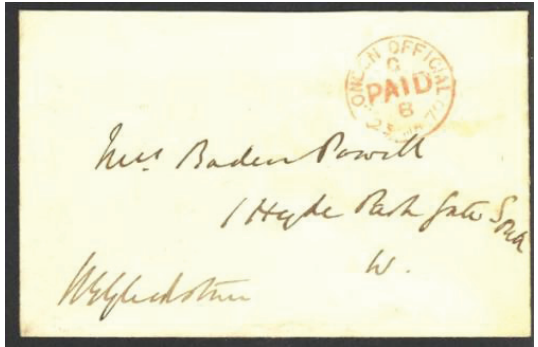 LONDON OFFICIAL
C
PAID
8
Mrs Baden Powell
1 Hyde Park Gate South
W.
WEGladstone